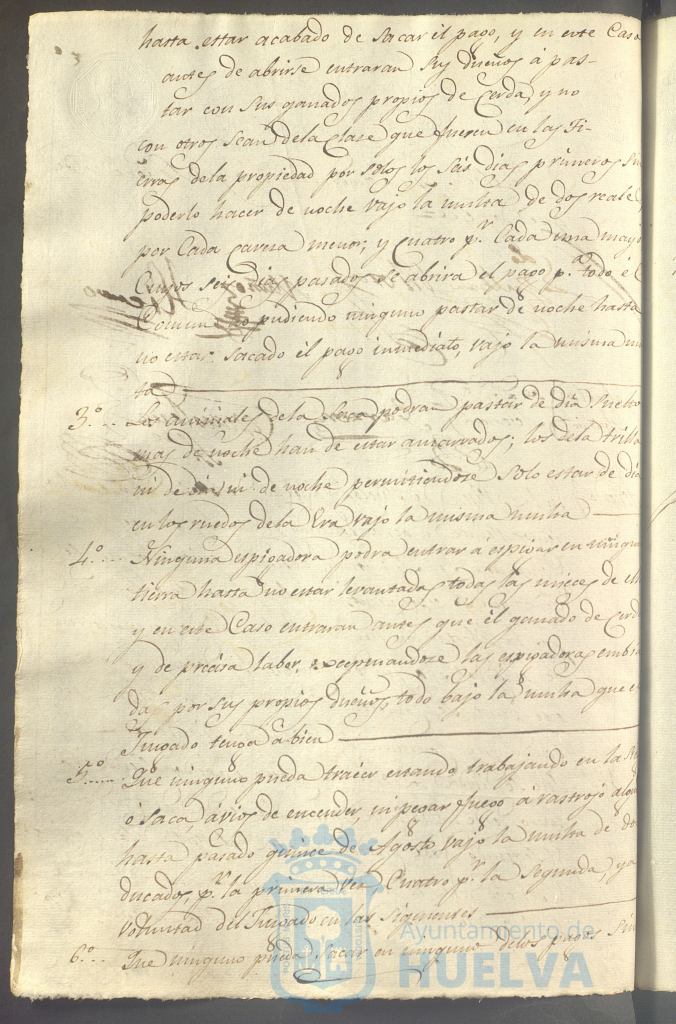 hasta estar acabado de sacar el pago, y en este Caso
antes de abrirse entraran sus dueños á pas-
tar con sus ganados propios de Cerda, y no
con otros sean de la Clase que fueren en las Ti-
erras de la propiedad por solos los seis dias primeros sin
poderlo hacer de noche vajo la multa de dos reales
por Cada Caveza menor, y quatro p.r Cada una mayor
Cuyos seis dias pasados se abrira el pago p.a todo el
Comun no pudiendo ninguno pastar de noche hasta
no estar sacado el pago inmediato, vajo la misma mul
ta
3.º... Los animales de la Saca podran pastar de dia suelto
mas de noche han de estar amarrados; los de la trilla
ni de dia ni de noche permitiendose solo estar de dia
en los ruedos de la Era, vajo la misma multa
4.º... Ninguna espigadora podra entrar á espigar en ningun
tierra hasta no estar levantadas todas las mieces de ell
y en este Caso entraran antes que el ganado de Cerd
y de precisa labor, exceptuandose las espigadoras embia
das por sus propios dueños, todo bajo la multa que el
Juzgado tenga á bien
5.º... Que ninguno pueda traéer estando trabajando en la
ó saca, ávios de encender, ni pegar fuego á rastrojo algu
hasta pasado quince de Agosto, vajo la multa de do
ducados, p.r la primera vez, Cuatro p.r la Segunda, y a
voluntad del Juzgado en las siguientes
6.º... Que ninguno pueda sacar en ninguno de los pagos sin
Ayuntamiento de
HUELVA